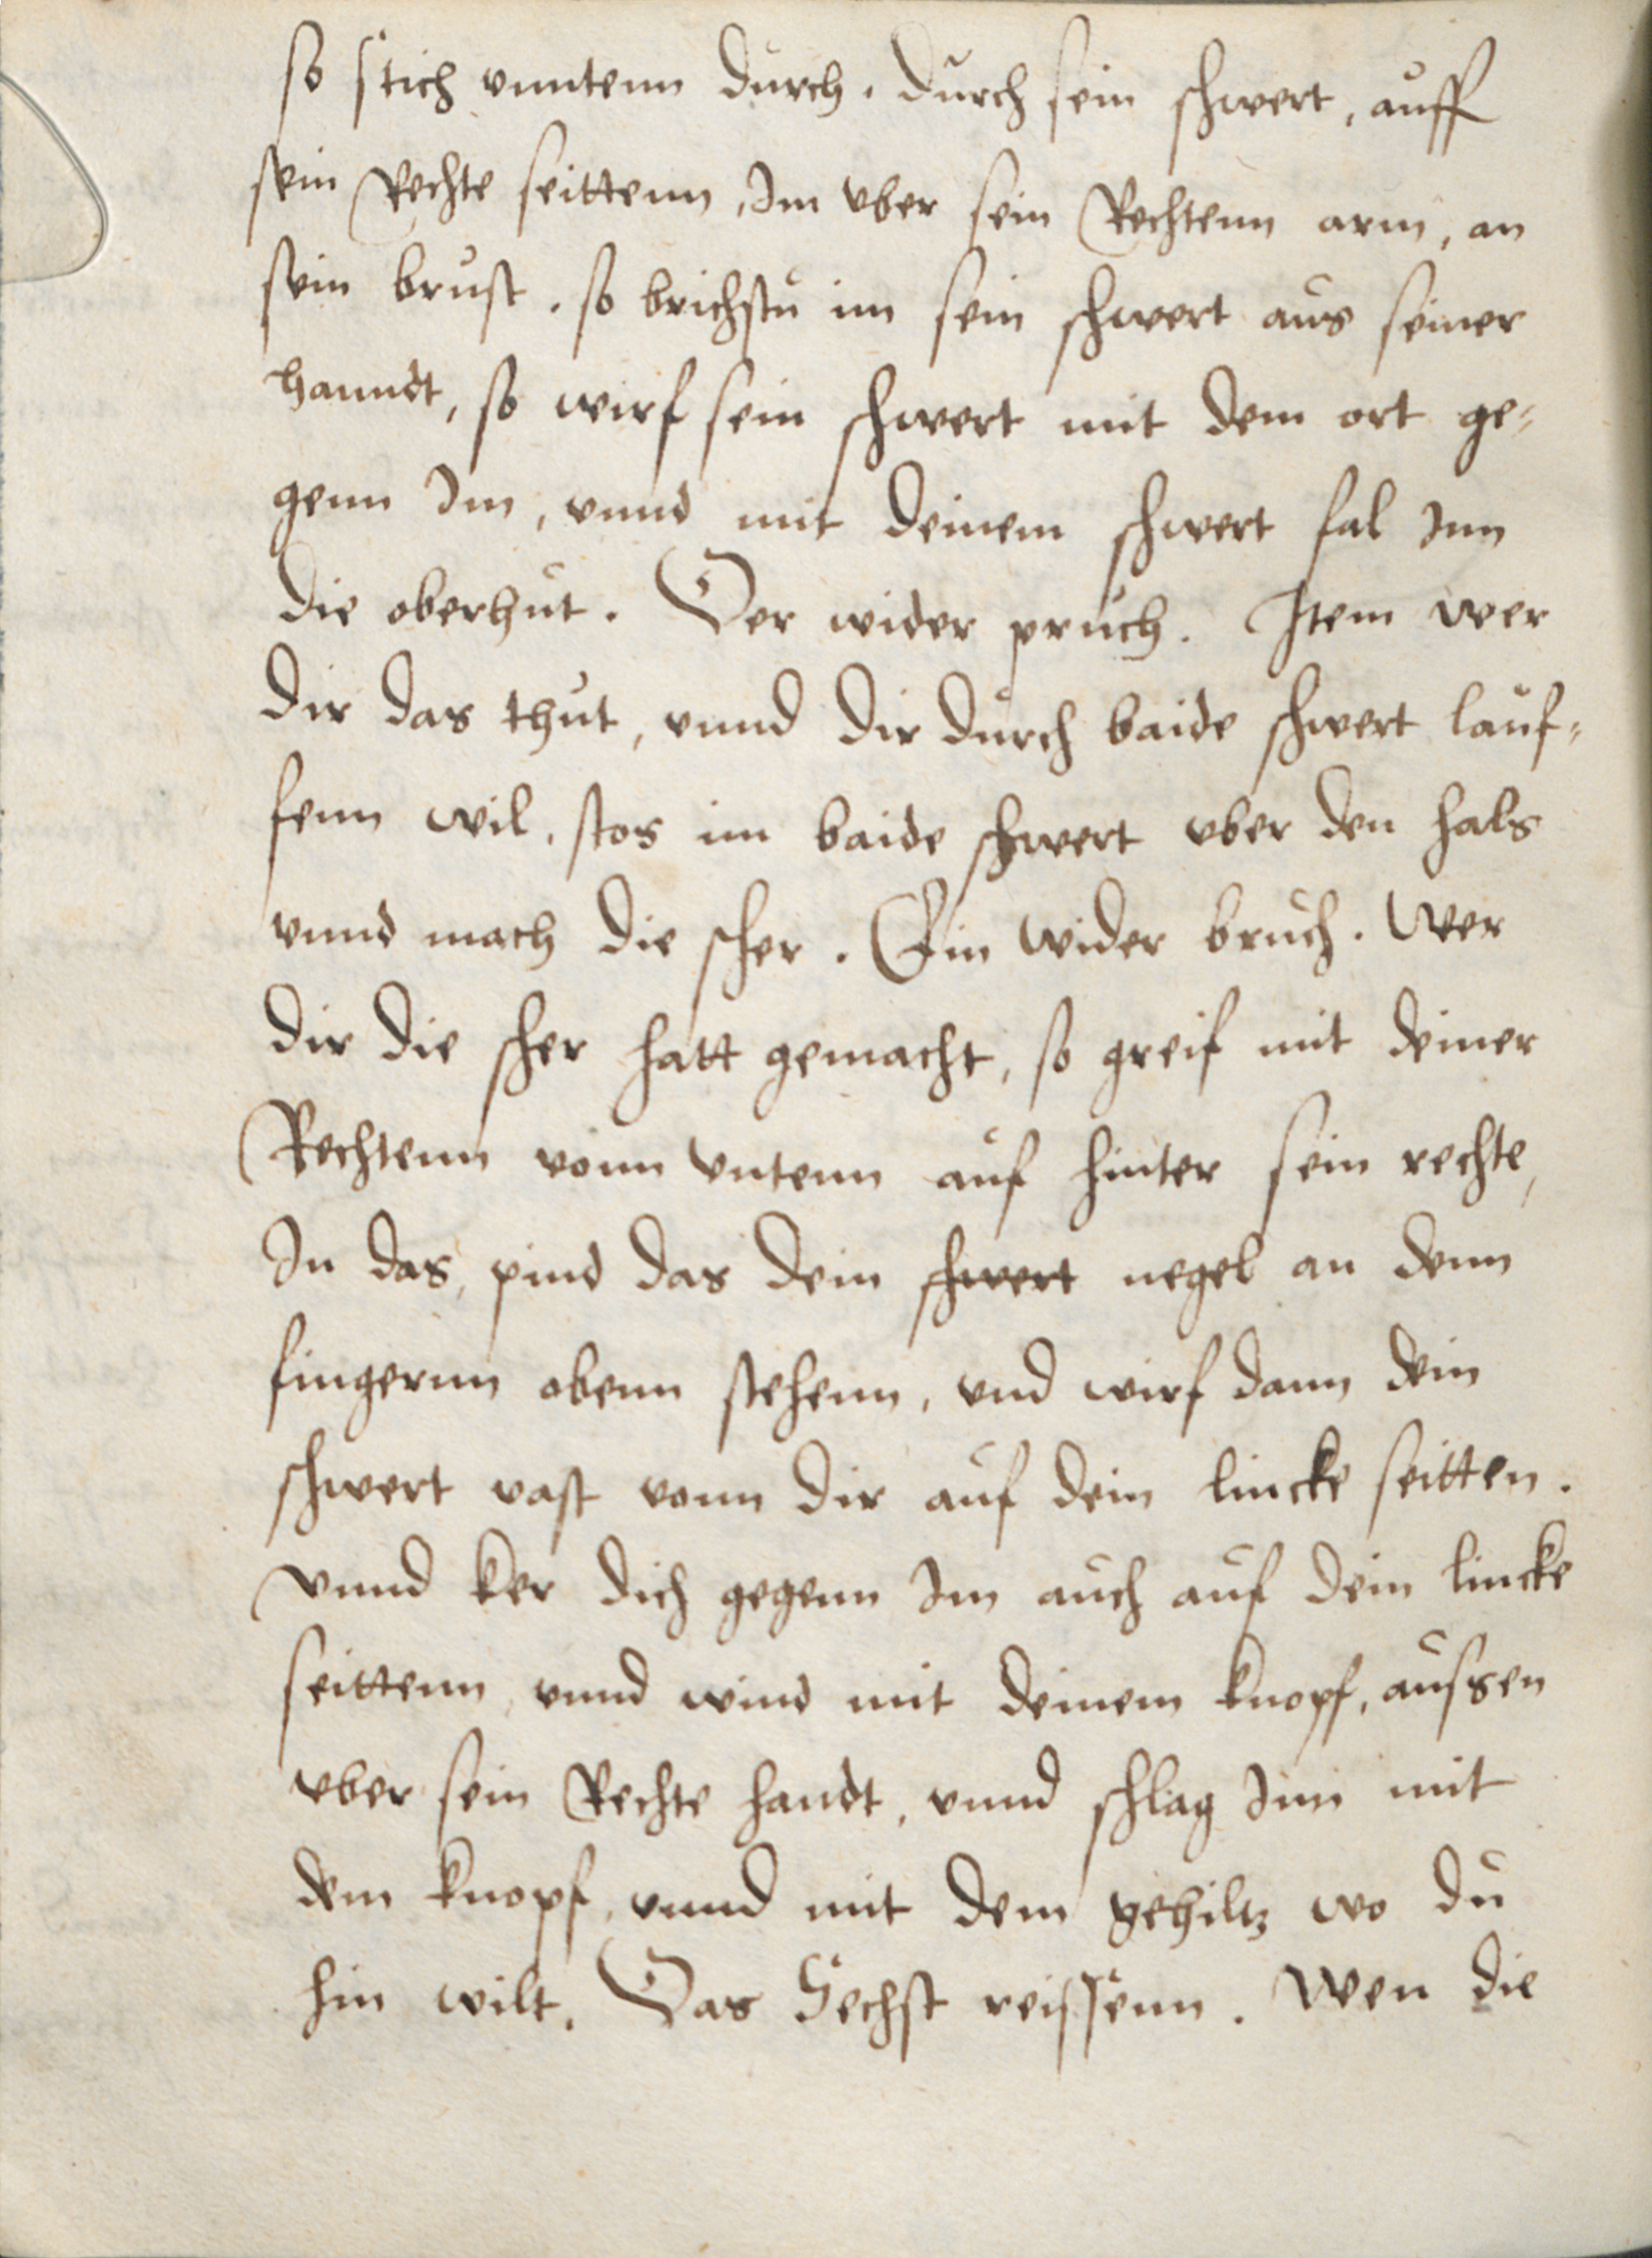 so stich vnntenn durch. durch sein schwert, auff
sein Rechte seittenn, Im vber sein Rechtenn arm, an
sein brust. so brichstu im sein schwert aus seiner
hanndt, so wirf sein schwert mit dem ort ge-
genn Im, vnnd mit deinem schwert fal Inn
die oberhut. Der wider pruch. Item wer
dir das thut, vnnd dir durch baide schwert lauf-
fenn wil, stos im baide schwert vber den hals
vnnd mach die scher. Ein wider bruch. Wer
dir die scher hatt gemacht, so greif mit deiner
Rechtenn vonn vntenn auf hinter sein rechte,
In das, pind das dein schwert negel an denn
fingernn obenn stehenn, vnd wirf dann dein
schwert vast vonn dir auf dein lincke seitten.
vnnd ker dich gegenn Im auch auf dein lincke
seittenn, vnnd wind mit deinem knopf, aussen
vber sein Rechte handt, vnnd schlag Inn mit
dem knopf, vnnd mit dem gehiltz wo du
hin wilt. Das Sechst reissenn. Wen die